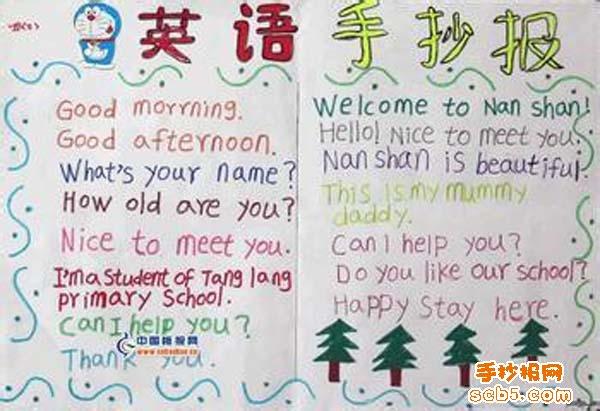 英语手抄报
Good morrning.
Good afternoon.
What's your name?
How old are you?
Nice to meet you.
I'm a Student of Tang lang
primary School.
Can I help you?
Thank you.
Welcome to Nan shan!
Hello! Nice to meet you.
Nan shan is beautiful.
This is my mummy
daddy.
Can I help you?
Do you like our school?
Happy Stay here.
中国板报网
手抄报网
scb5.com